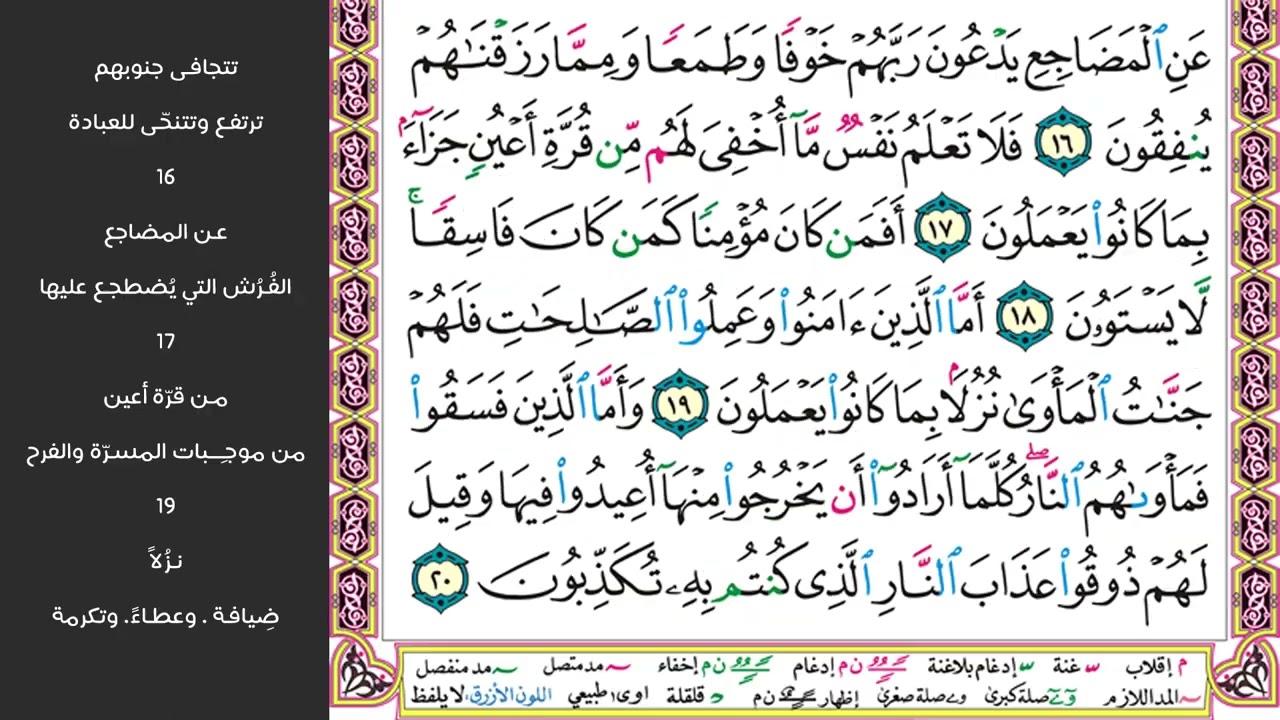 عَنِ ٱلْمَضَاجِعِ يَدْعُونَ رَبَّهُمْ خَوْفًا وَطَمَعًا وَمِمَّا رَزَقْنَـٰهُمْ
يُنفِقُونَ ١٦ فَلَا تَعْلَمُ نَفْسٌ مَّآ أُخْفِىَ لَهُم مِّن قُرَّةِ أَعْيُنٍ جَزَآءًۢ
بِمَا كَانُوا۟ يَعْمَلُونَ ١٧ أَفَمَن كَانَ مُؤْمِنًا كَمَن كَانَ فَاسِقًا ۚ
لَّا يَسْتَوُۥنَ ١٨ أَمَّا ٱلَّذِينَ ءَامَنُوا۟ وَعَمِلُوا۟ ٱلصَّـٰلِحَـٰتِ فَلَهُمْ
جَنَّـٰتُ ٱلْمَأْوَىٰ نُزُلًۢا بِمَا كَانُوا۟ يَعْمَلُونَ ١٩ وَأَمَّا ٱلَّذِينَ فَسَقُوا۟
فَمَأْوَىٰهُمُ ٱلنَّارُ ۖ كُلَّمَآ أَرَادُوٓا۟ أَن يَخْرُجُوا۟ مِنْهَآ أُعِيدُوا۟ فِيهَا وَقِيلَ
لَهُمْ ذُوقُوا۟ عَذَابَ ٱلنَّارِ ٱلَّذِى كُنتُم بِهِۦ تُكَذِّبُونَ ٢٠
م إقلاب غنة إدغام بلاغنة ن م إدغام ن م إخفاء مد متصل مد منفصل
المد اللازم صلة كبرى صلة صغرى إظهار ن م قلقلة اوى طبيعي اللون الأزرق، لا يلفظ
تتجافى جنوبهم
ترتفع وتتنحّى للعبادة
16
عن المضاجع
الفُرُش التي يُضطجع عليها
17
من قرّة أعين
من موجِبات المسرّة والفرح
19
نزُلاً
ضِيافة . وعطاءً. وتكرمة